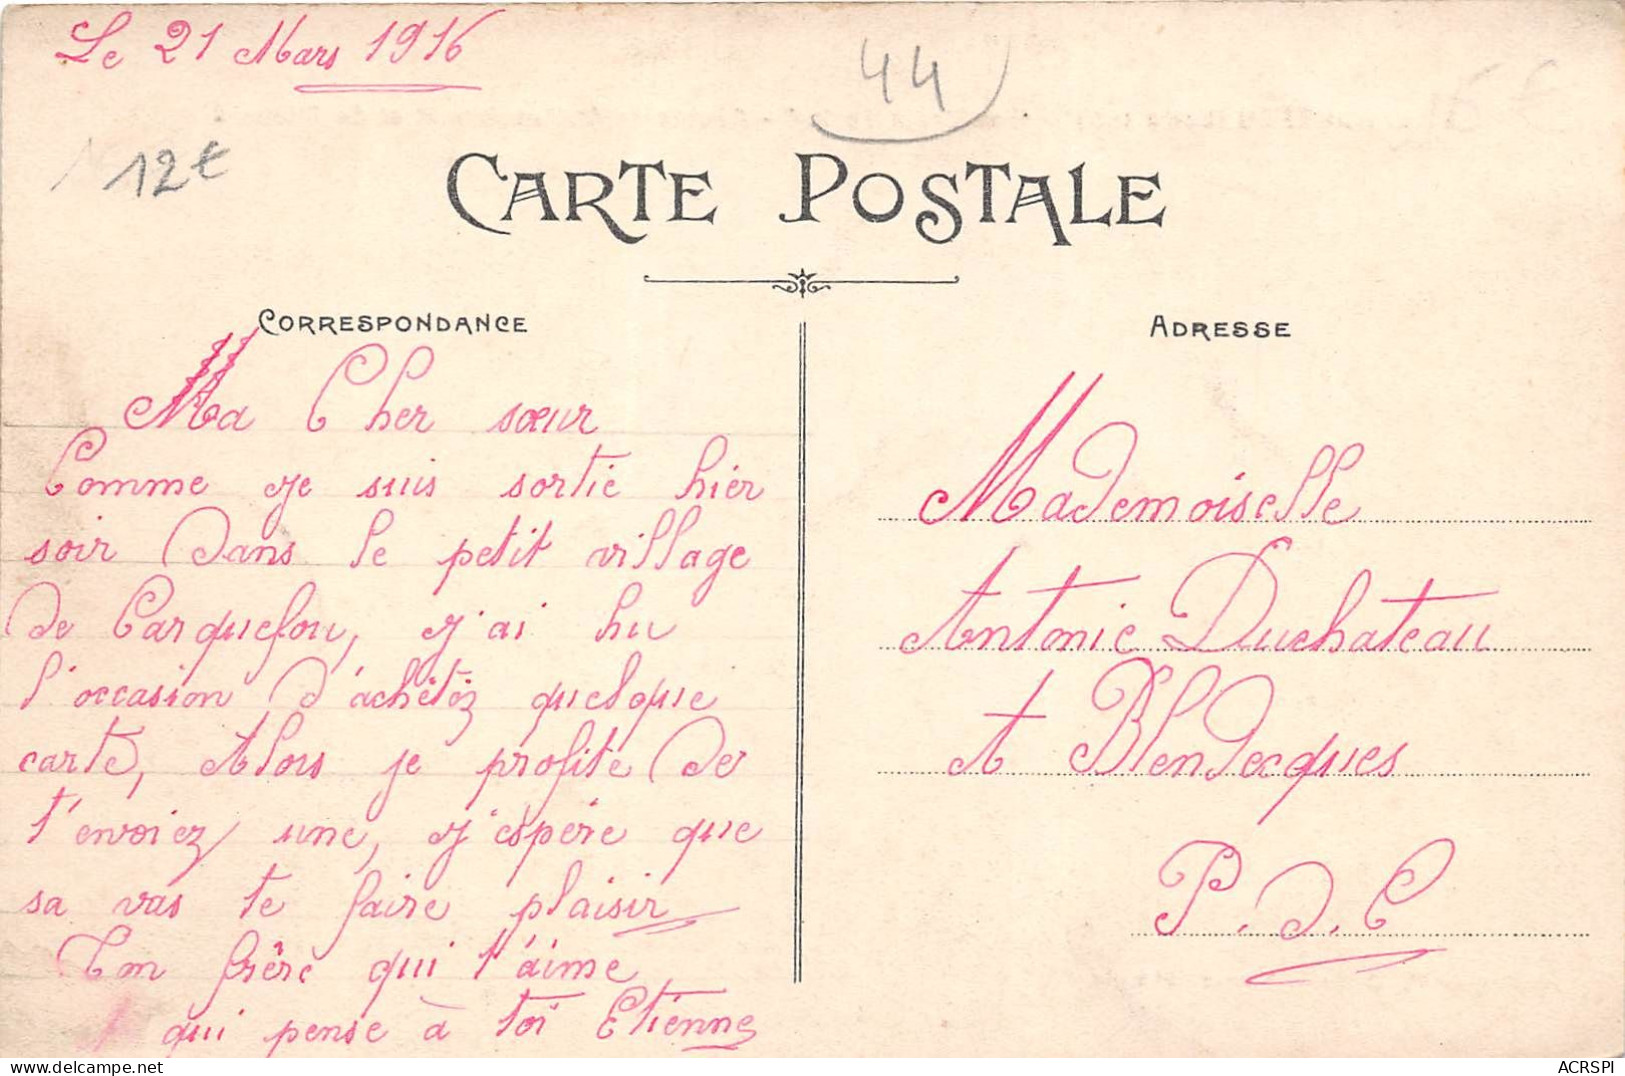 Le 21 Mars 1916
44
12€
CARTE POSTALE
CORRESPONDANCE
ADRESSE
Ma Cher sœur
Comme je suis sortie hier
soir dans le petit village
de Carquefou, j'ai hu
l'occasion d'achêtéz quelque
carte, Alors je profite der
t'envoiez une, j'espère que
sa vas te faire plaisir
Ton frère qui t'aime
qui pense à toi Etienne
Mademoiselle
Antonie Duchateau
A Blendecques
P. d. C
ACRSPI